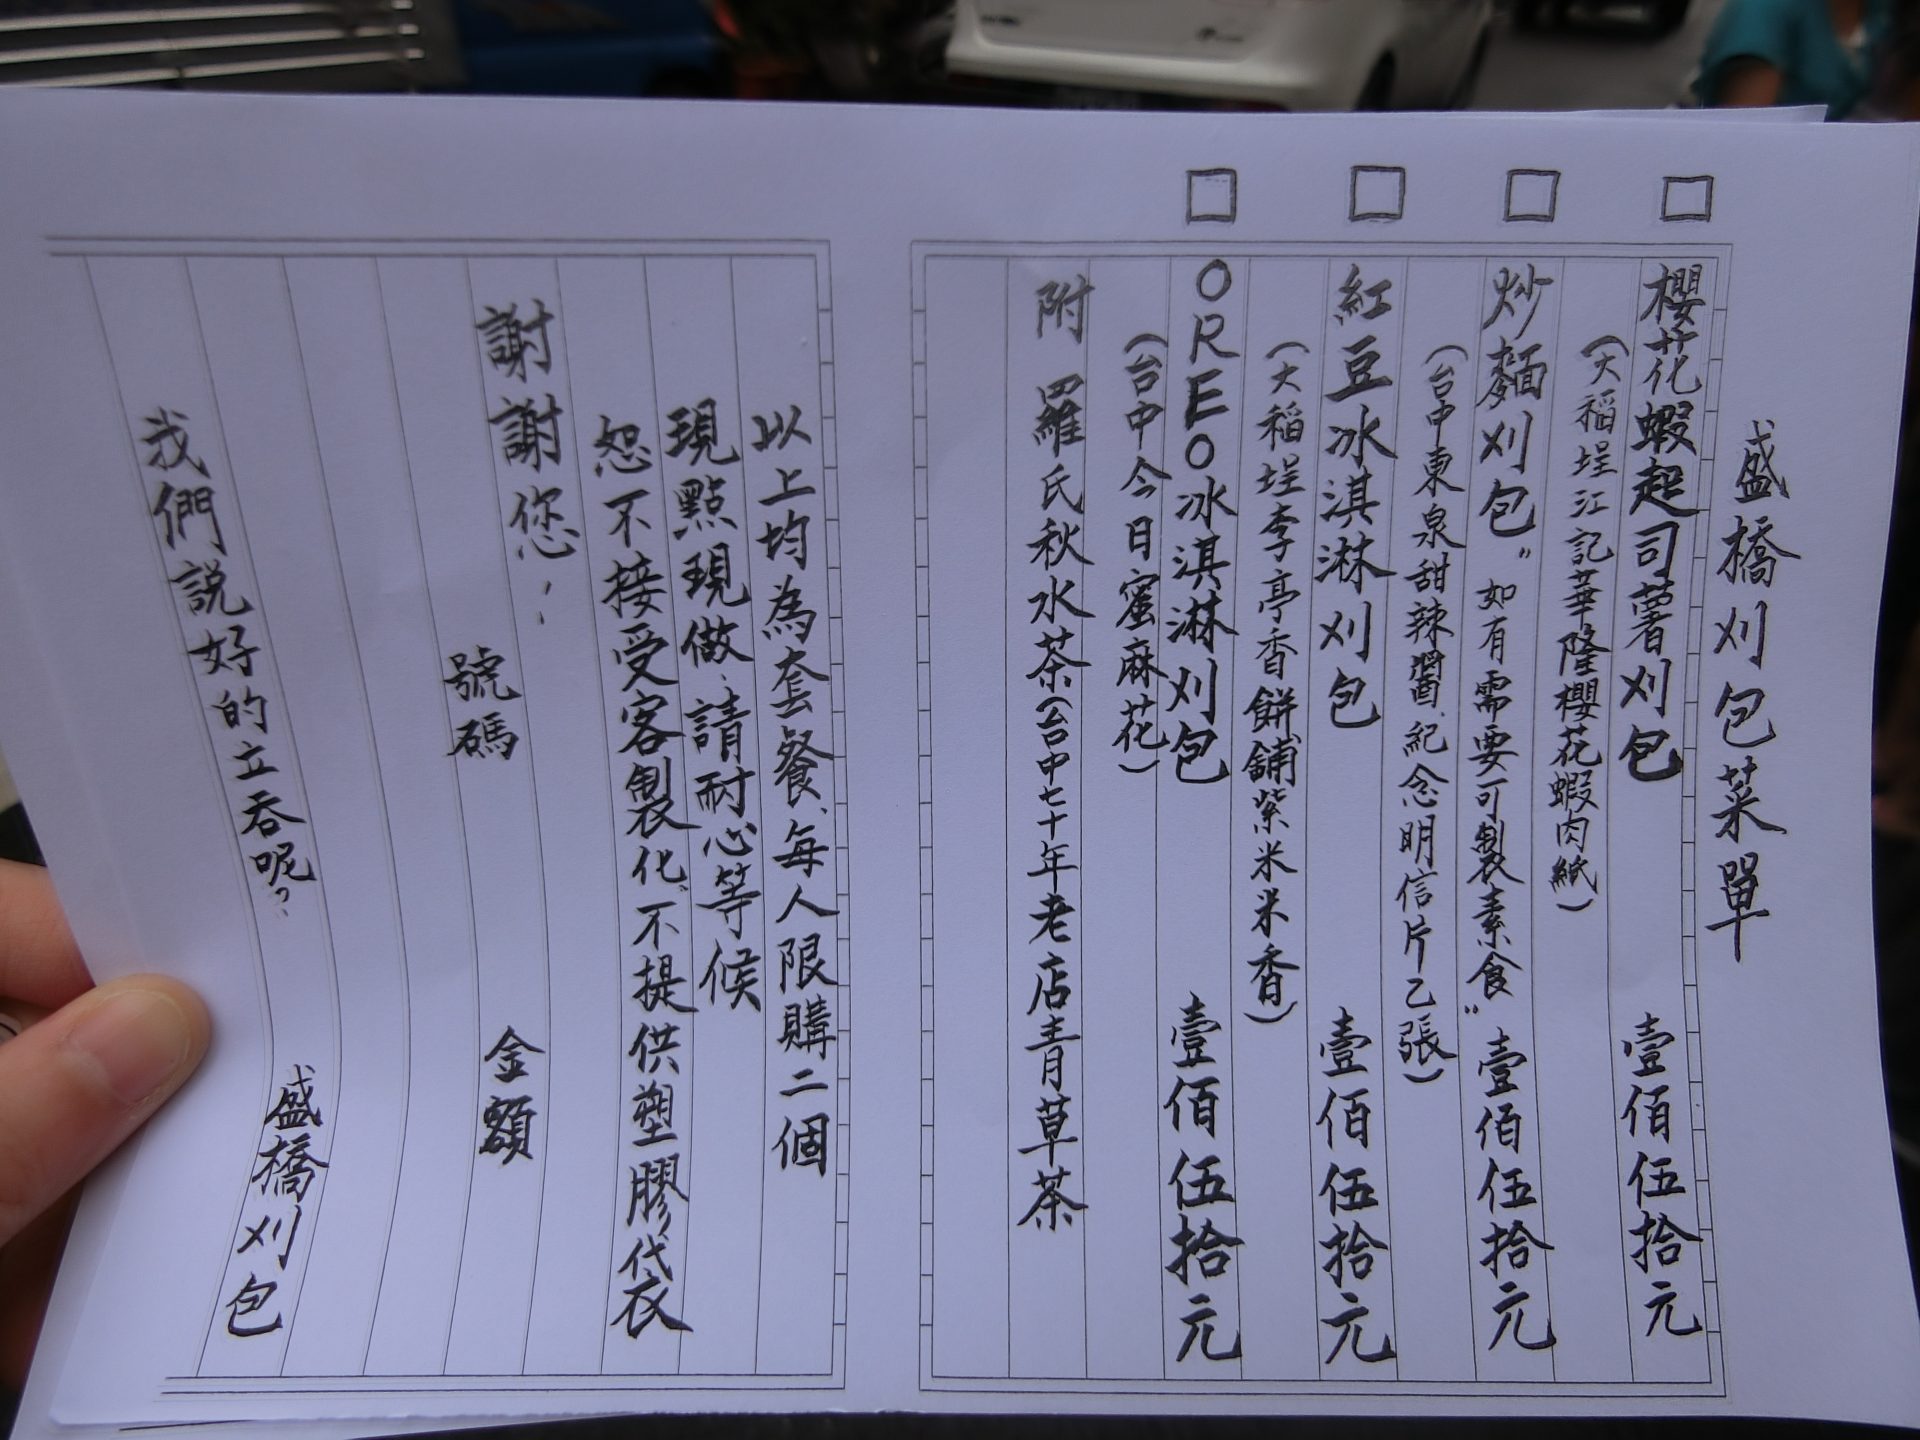 盛橋刈包菜單
櫻花蝦起司薯刈包 壹佰伍拾元
(大稻埕江記華隆櫻花蝦肉紙)
炒麵刈包"如有需要可製素食" 壹佰伍拾元
(台中東泉甜辣醬、紀念明信片乙張)
紅豆冰淇淋刈包 壹佰伍拾元
(大稻埕李亭香餅舖紫米米香)
OREO冰淇淋刈包 壹佰伍拾元
(台中今日蜜麻花)
附 羅氏秋水茶(台中七十年老店青草茶
以上均為套餐、每人限購二個
現點現做、請耐心等候
恕不接受客製化、不提供塑膠袋
謝謝您,,
號碼 金額
我們說好的立吞呢?
盛橋刈包